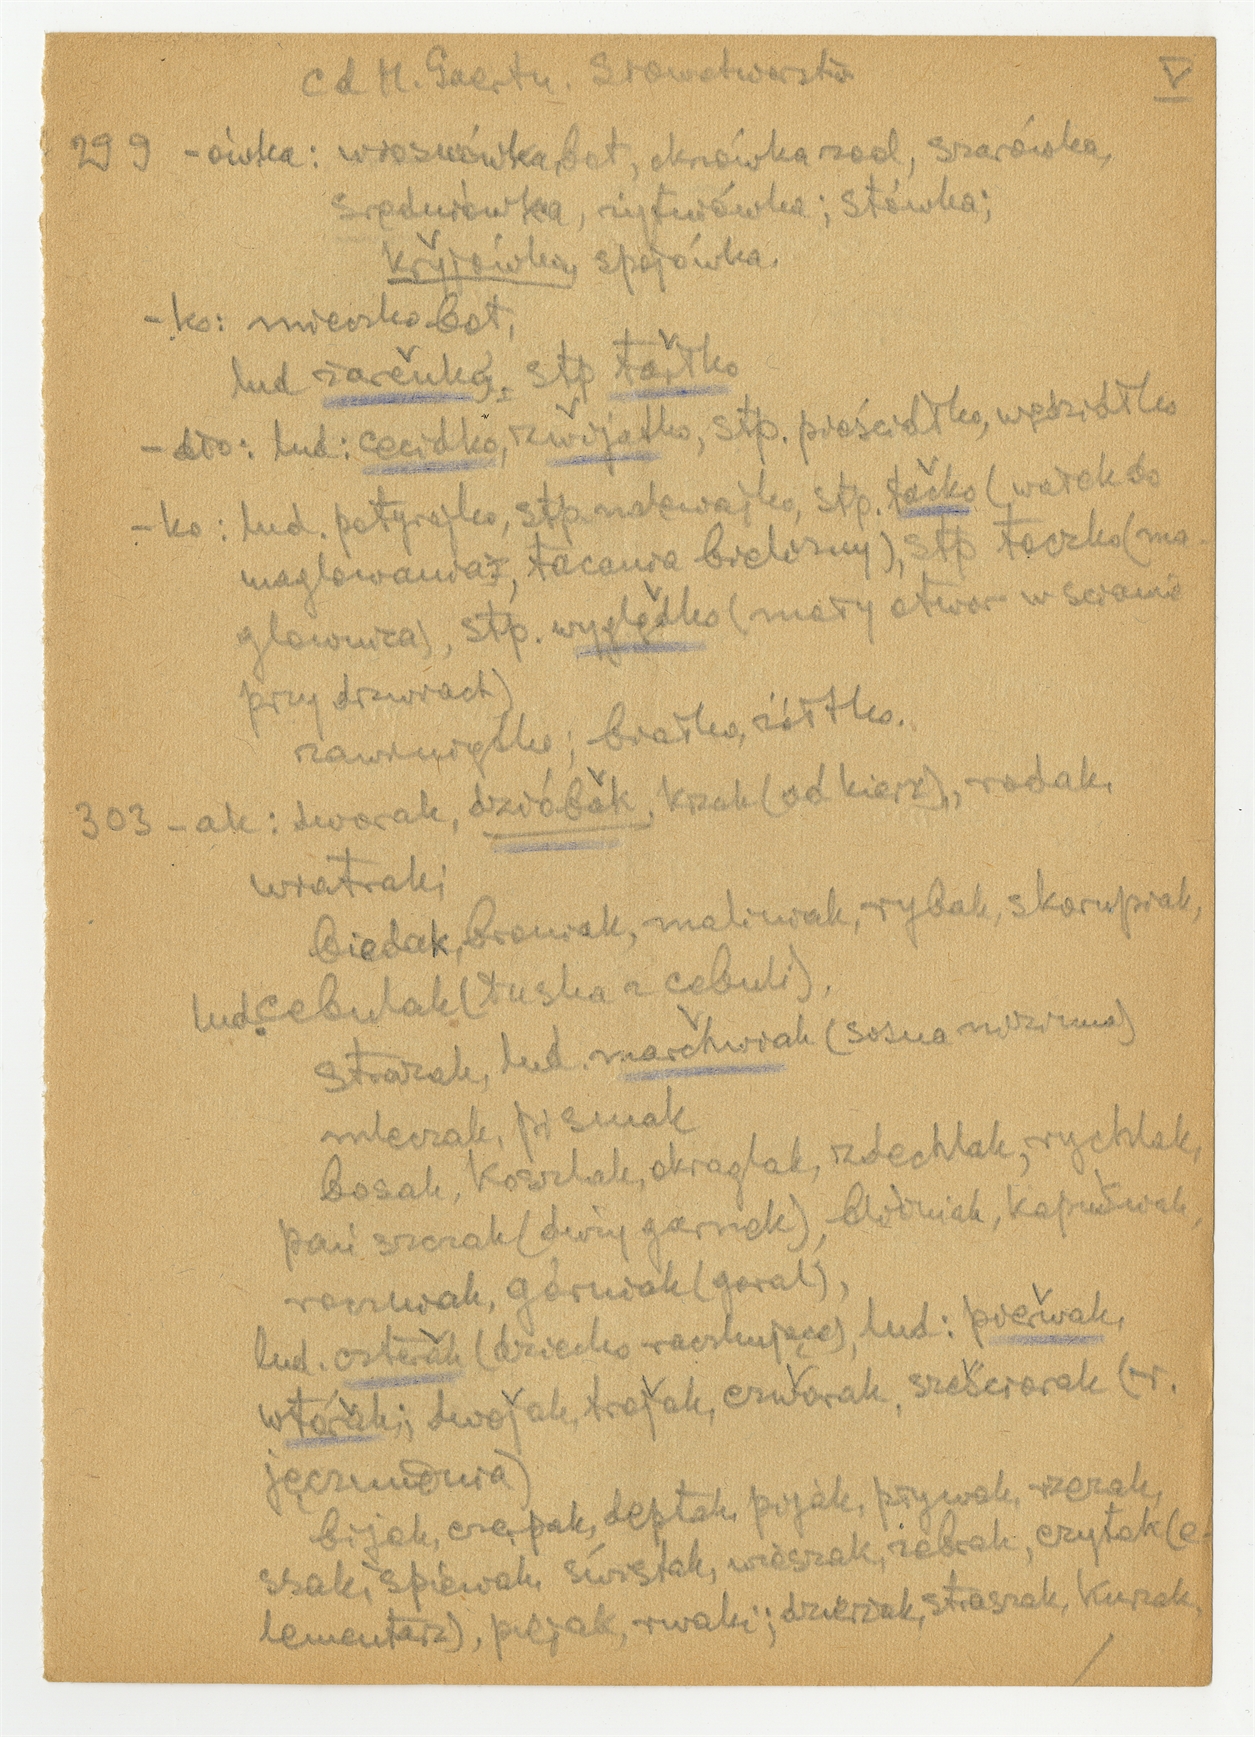 c d H. Gaertn. Słowotwórstw V
299 -ówka: wrosnówka, bot, oknówka zool, szarówka,
średniówka, żytniówka; stówka;
kryjówka, spojówka.
-ko: mleczko bot,
lud stp
-dło: lud: cecidko, zwijatko, stp. prościdłko, wędzidłko
-ko: lud. potyrajko, stp. nalewajko, stp. tačko (wałek do
maglowania, tacania bielizny), stp toczko (ma-
glownica), stp. wyglądko (mały otwor w scianie
przy drzwiach)
zawiniątko; białko, żółtko.
303 -ak: dworak, dzióbak, krzak (od kierz), rodak,
wiatrak;
biedak, broniak, maliniak, rybak, skorupiak,
lud. cebulak (łuska z cebuli),
strażak, lud. marchwiak (sosna nizinna)
mleczak, pismak
bosak, koszlak, okrąglak, zdechlak, rychlak,
pańszczak (duży garnek), bliźniak, kapuśniak,
roczniak, górniak (goral),
lud. czterak (dziecko raczkujące), lud: pierwak,
wtórak; dwojak, trojak, czworak, sześciorak (r.
jęczmienia)
bijak, czerpak, deptak, pijak, pływak, rzezak,
ssak, śpiewak, świstak, wieszak, żebrak, czytak (e-
lementarz), piejak, rwak; dzierżak, straszak, kurzak,